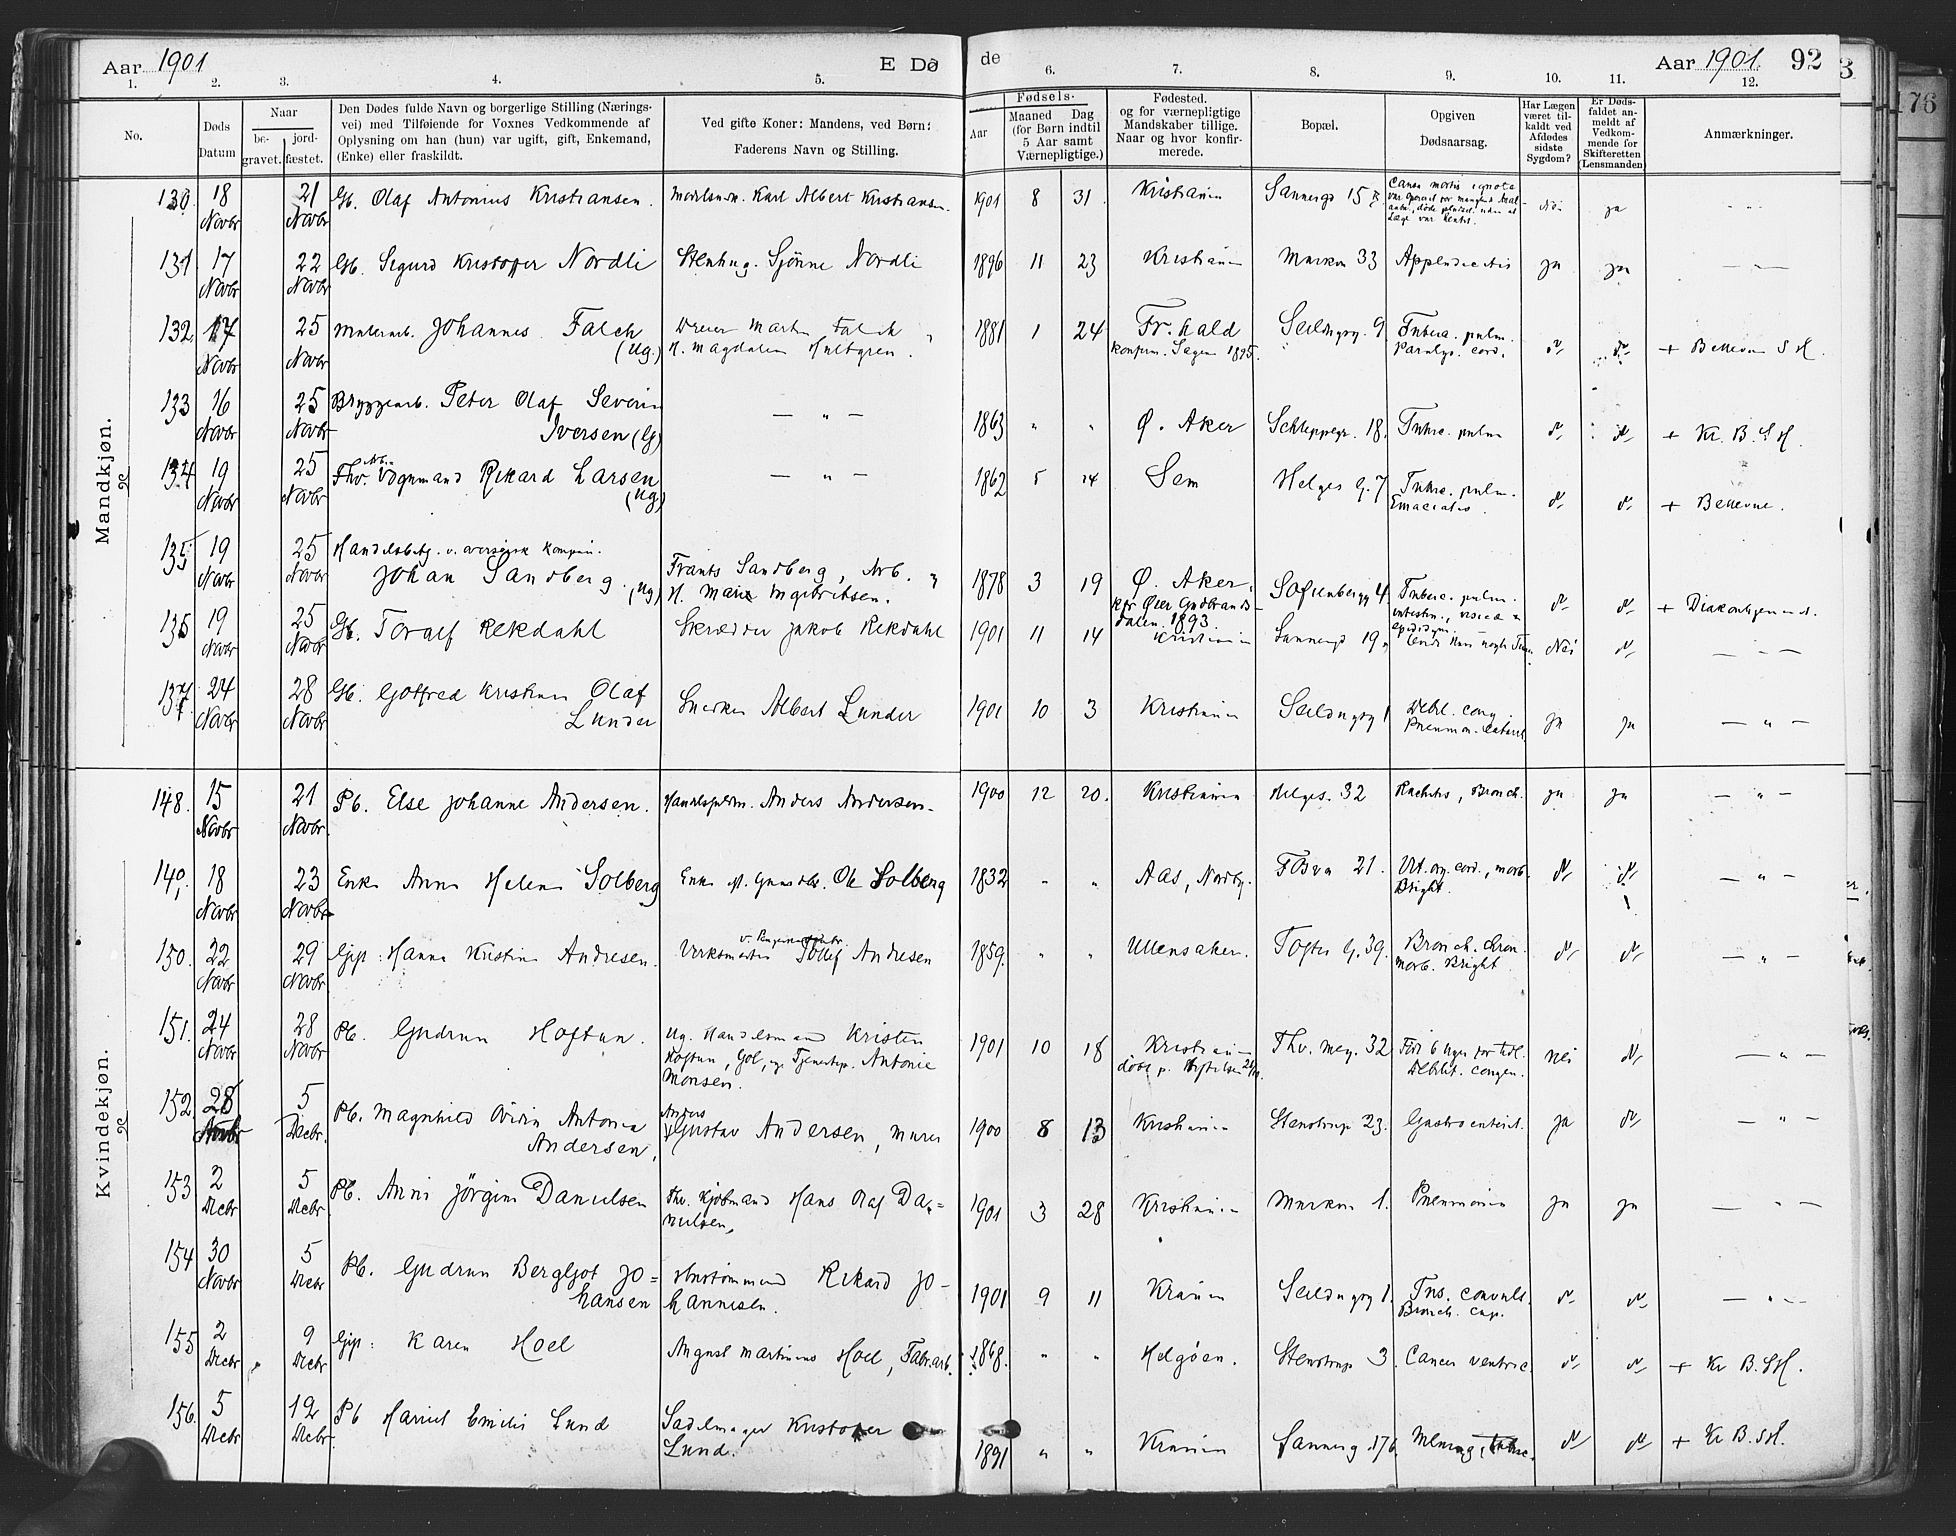 Aar 1901 E Dø de Aar 1901. 92
1. 2. 3. 4. 5. 6. 7. 8. 9. 10. 11. 12.
No.
Døds Datum
Naar
be- gravet.
jord- fæstet.
Den Dødes fulde Navn og borgerlige Stilling (Nærings-
vei) med Tilføiende for Voxnes Vedkommende af
Oplysning om han (hun) var ugift, gift, Enkemand,
(Enke) eller fraskildt.
Ved gifte Koner: Mandens, ved Børn:
Faderens Navn og Stilling.
Fødsels-
Aar
Maaned Dag
(for Børn indtil
5 Aar samt
Værnepligtige.)
Fødested.
og for værnepligtige
Mandskaber tillige.
Naar og hvor konfir-
merede.
Bopæl.
Opgiven
Dødsaarsag.
Har Lægen
været til-
kaldt ved
Afdødes
sidste
Sygdom?
Er Døds-
faldet an-
meldt af
Vedkom-
mende for
Skifteretten
(Lensmanden)
Anmærkninger.
Mandkjøn.
130. 18 Novbr 21 Novbr Gb. Olaf Antonius Kristiansen. Karl Albert Kristiansen. 1901 8 31 Kristiania Sannergd 15 Causa mortis ignota ja
131 17 Novbr 22 Novbr Gb. Sigurd Kristoffer Nordli Stenhug. Sjønne Nordli 1896 11 23 Kristiania Markv 33 Appendicitis ja ja
132. 17 Novbr 25 Novbr Malerarb. Johannes Falch (ug.) Dreier Martin Falch H. Magdalene Hultgren. 1881 1 24 Fr.hald konfirm. Sagene 1895. Seildugsg. 9 Tuberc. pulm. Paralys. cord. + Bellevue S H.
133 16 Novbr 25 Novbr Bryggearb. Peter Olaf Severin Iversen (G) — " — 1863 " " Ø. Aker Schleppegr. 18. Tuberc. pulm + Kr. B. S H.
134 19 Novbr 25 Novbr Fhv. Arb. Vognmand Rikard Larsen (ug) — " — 1862 5 14 Sem Helges G. 7 Tuberc. pulm. Emaciatio. + Bellevue.
135 19 Novbr 25 Novbr Johan Sandberg. (ug) Frants Sandberg, Arb. H. Marie Ingebritsen. 1878 3 19 Ø. Aker. kfr Øier Gudbrands- dalen 1893. Sofienbergg 4 Tuberc. pulm. intestin., vesicæ + Diakonhjemmet.
136 19 Novbr 25 Novbr Gb. Toralf Rekdahl Skrædder Jakob Rekdahl 1901 11 14 Kristiania Sannergd 19 Nei — " —
137. 24 Novbr 28 Novbr Gb. Gotfred Kristian Olaf Lunder Snedker Albert Lunder 1901 10 3 Kristiania Seildugsg 1 Debil. cong Pneumon. catarrh. ja ja — " —
Kvindekjøn.
148. 15 Novbr 21 Novbr Pb. Else Johanne Andersen. Anders Andersen. 1900 12 20. Kristiania Helges. 32 Rachitis, Bronch. ja ja — " —
149. 18 Novbr 23 Novbr Enke Anne Helene Solberg Enke Ole Solberg 1832 " " Aas, Nordby. Fossv 21. Vit. org. cord., morb. Bright. — " —
150. 22 Novbr 29 Novbr Gift: Hanna Kristine Andresen. Verksmester Tollef Andresen 1859. " " Ullensaker. Toftes G. 39. Bronch. chron. morb. Bright — " —
151. 24 Novbr 28 Novbr Pb. Gudrun Hoftun. Ug. Handelsmand Kristen Hoftun, Gol, ug. Tjenestep. Antonie Monsen. 1901 10 18 Kristiania døbt p. Stiftelsen Thv. Mey. 32 Født 6 Uger for tidl. Debilit. congen. nei — " —
152. 28 Novbr 5 Decbr. Pb. Magnhild Antonia Andersen, Anders Gustav Andersen, Murer 1900 8 13 Kristiania Stenstrup 23. Gastroenterit. ja — " —
153 2 Decbr 5 Decbr Pb. Anna Jörgine Danielsen Fhv. Kjøbmand Hans Olaf Da= nielsen, 1901 3 28 Kristiania Markv 1. Pneumonia ja ja — " —
154 30 Novbr 5 Decbr Pb. Gudrun Bergljot Jo= hansen Rikard Jo- hannesen. 1901 9 11 Krania Seildugsg 1. Tus. convuls. Bronch. cap. — " —
155 2 Decbr 9 Decbr Gift: Karen Hoel August Martinius Hoel, Fabr.arb. 1868. " " Helgøen. Stenstrup 3. Cancer ventric. + Kr B. SH.
156. 5 Decbr 12 Decbr. Pb Emilie Lund Sadelmager Kristoffer Lund. 1891 " " Krania Sannerg. 17b. Mening. tuberc. + Kr B. SH.
3
176